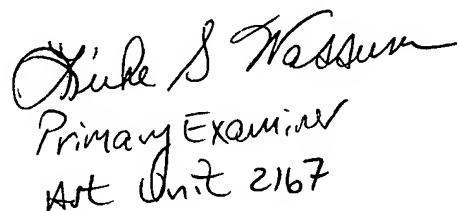 S Wassum
Primary Examiner
Art Unit 2167